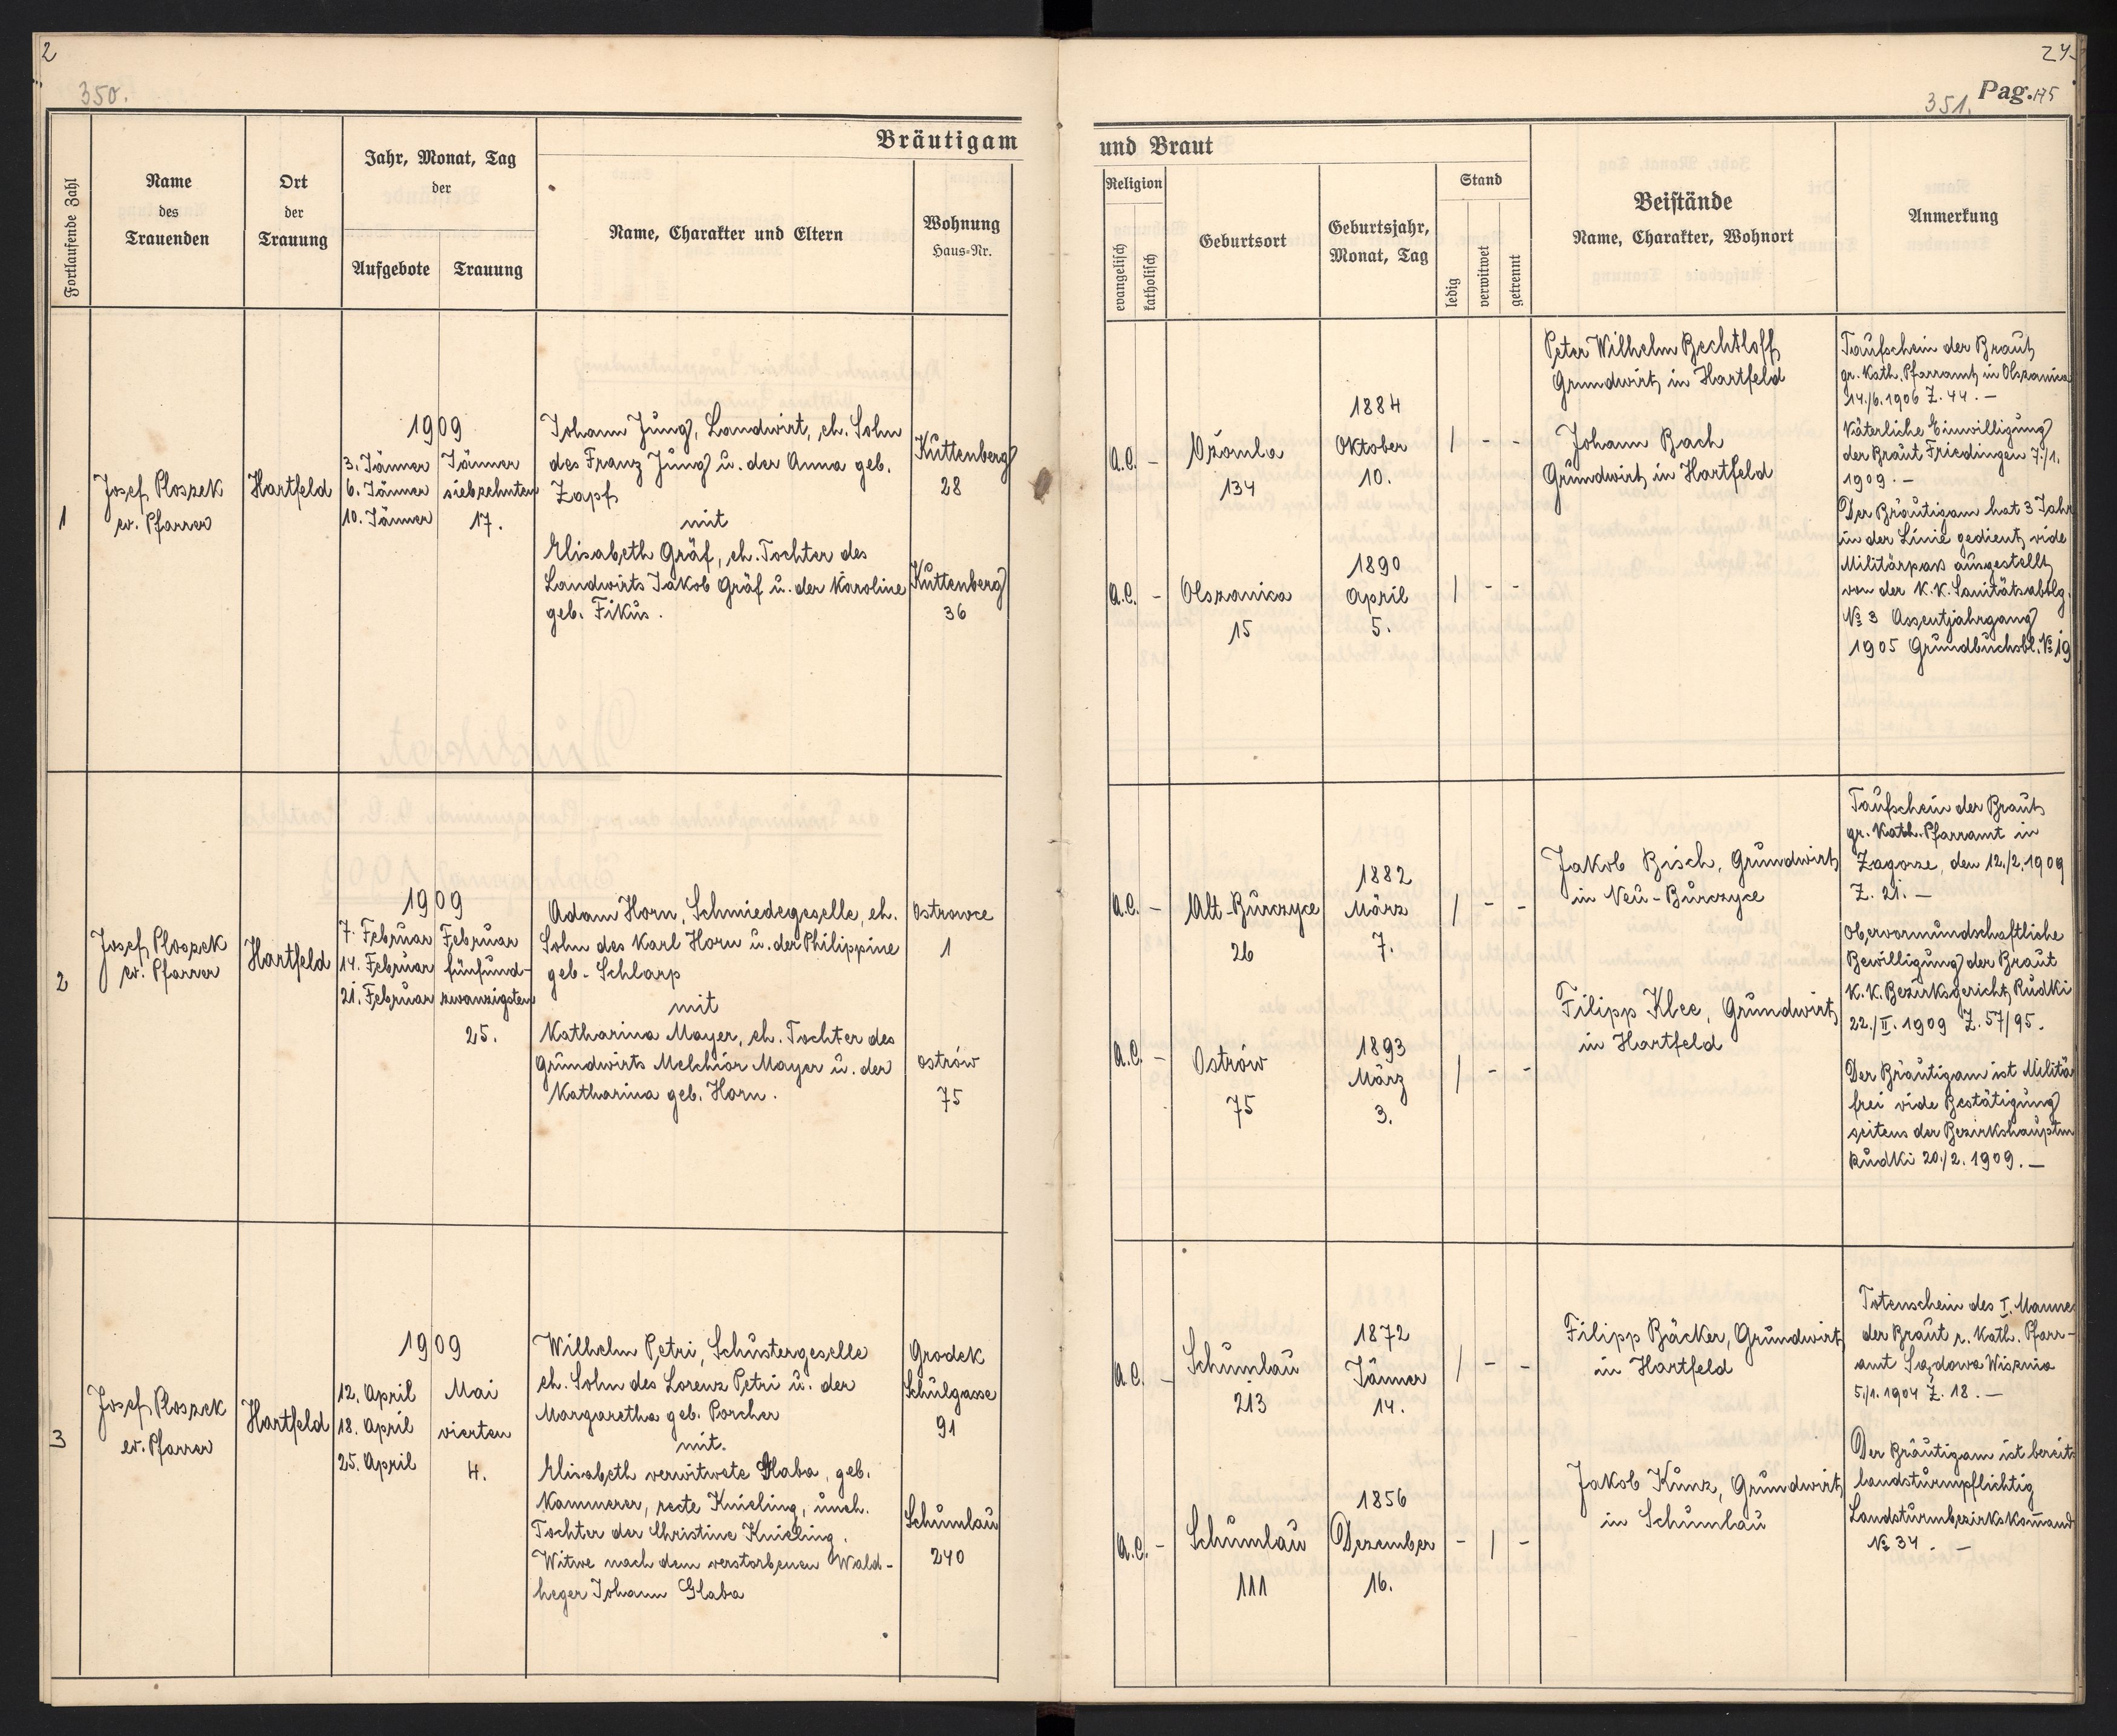 2
350.
24.
351. Pag. 175
Bräutigam
und Braut
Fortlaufende Zahl
Name
des
Trauenden
Ort
der
Trauung
Jahr, Monat, Tag
der
Aufgebote
Trauung
Name, Charakter und Eltern
Wohnung
Haus=Nr.
Religion
evangelisch
katholisch
Geburtsort
Geburtsjahr,
Monat, Tag
Stand
ledig
verwitwet
getrennt
Beistände
Name, Charakter, Wohnort
Anmerkung
1
Josef Ploszek
ev. Pfarrer
Hartfeld
1909
3. Jänner
6. Jänner
10. Jänner
Jänner
siebzehnten
17.
Johann Jung, Landwirt, eh. Sohn
des Franz Jung u. der Anna geb.
Zapf
mit
Elisabeth Gräf, eh. Tochter des
Landwirts Jakob Gräf u. der Karoline
geb. Fikus.
Kuttenberg
28
Kuttenberg
36
A.C. -
Ožomla
134
1884
Oktober
10.
/ - -
A.C. -
Olszanica
15
1890
April
5.
/ - -
Peter Wilhelm Bechtloff
Grundwirt in Hartfeld
Johann Bach
Grundwirt in Hartfeld
Taufschein der Braut
gr. Kath. Pfarramt in Olszanica
14./6. 1906 Z. 44. —
Väterliche Einwilligung
der Braut Friedingen 7./1.
1909. —
Der Bräutigam hat 3 Jahr
in der Linie gedient vide
Militärpass ausgestellt
von der K.K. Sanitätsabtlg.
№ 3 Assentjahrgang
1905 Grundbuchsbl. № 19
2
Josef Ploszek
ev. Pfarrer
Hartfeld
1909
7. Februar
14. Februar
21. Februar
Februar
fünfund-
zwanzigsten
25.
Adam Horn, Schmiedegeselle, eh.
Sohn des Karl Horn u. der Philippine
geb. Schlarp
mit
Katharina Mayer, eh. Tochter des
Grundwirts Melchior Mayer u. der
Katharina geb. Horn.
Ostrowce
1
Ostrów
75
A.C. -
Alt-Burczyce
26
1882
März
7.
/ - -
A.C. -
Ostrów
75
1893
März
3.
/ - -
Jakob Bisch, Grundwirt
in Neu-Burczyce
Filipp Klee, Grundwirt
in Hartfeld
Taufschein der Braut
gr. Kath. Pfarramt in
Zagorze, den 12./2. 1909
Z. 21. —
Obervormundschaftliche
Bewilligung der Braut
K.K. Bezirksgericht Rudki
22./II. 1909 Z. 57/95.
Der Bräutigam ist Militä
frei vide Bestätigung
seitens der Bezirkshauptm
Rudki 20./2. 1909. —
3
Josef Ploszek
ev. Pfarrer
Hartfeld
1909
12. April
18. April
25. April
Mai
vierten
4.
Wilhelm Petri, Schustergeselle
eh. Sohn des Lorenz Petri u. der
Margaretha geb. Porcher
mit.
Elisabeth verwitwete Glaba, geb.
Kammerer, recte Knieling, uneh.
Tochter der Christine Knieling.
Witwe nach dem verstorbenen Wald-
heger Johann Glaba
Grodek
Schulgasse
91
Schumlau
240
A.C. -
Schumlau
213
1872
Jänner
14.
/ - -
A.C. -
Schumlau
111
1856
Dezember
16.
- / -
Filipp Bäcker, Grundwirt
in Hartfeld
Jakob Kunz, Grundwirt
in Schumlau
Totenschein des I. Manne
der Braut r. Kath. Pfarr-
amt Sądowa Wisznia
5./1. 1904 Z. 18. —
Der Bräutigam ist bereit
landsturmpflichtig
Landsturmbezirkskomand
№ 34. —